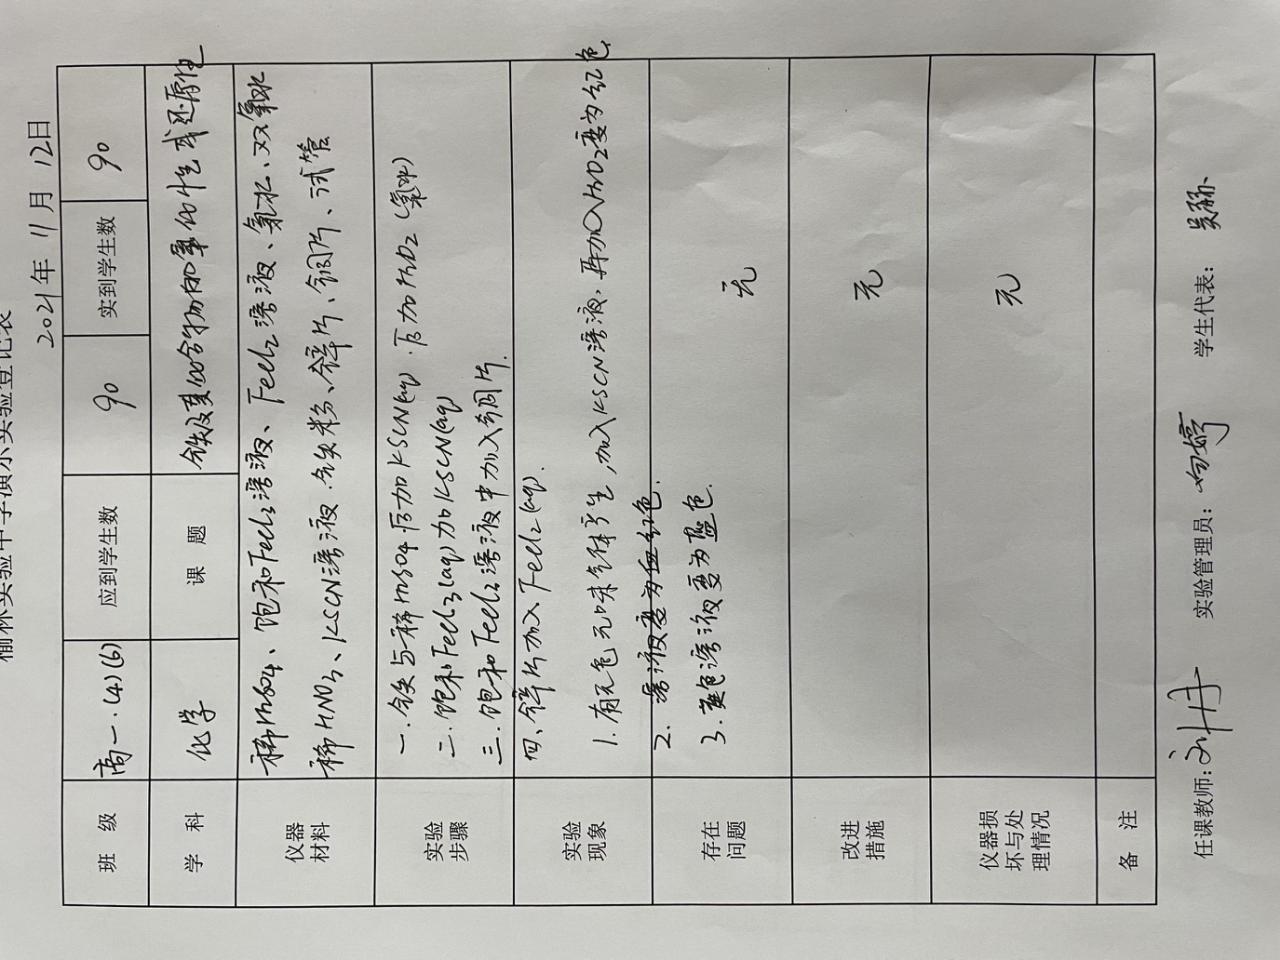 榆林实验中学演示实验登记表
2021年 11月 12日
班 级 高一.(4)(6) 应到学生数 90 实到学生数 90
学 科 化学 课 题 铁及其化合物的氧化性或还原性
仪器
材料
稀H2SO4、饱和FeCl3溶液、FeCl2溶液、氯水、双氧水
稀HNO3、KSCN溶液.铁粉、锌片、铜片、试管
实验
步骤
一.铁与稀H2SO4后加KSCN(aq).后加H2O2(氯水)
二.饱和FeCl3(aq)加KSCN(aq)
三.饱和FeCl3溶液中加入铜片.
四、锌片加入FeCl2(aq).
实验
现象
1.有无色无味气体产生,加入KSCN溶液,再加入H2O2变为红色
2.溶液变为血红色.
3.黄色溶液变为蓝色.
存在
问题
无
改进
措施
无
仪器损
坏与处
理情况
无
备 注
任课教师: 实验管理员: 学生代表: